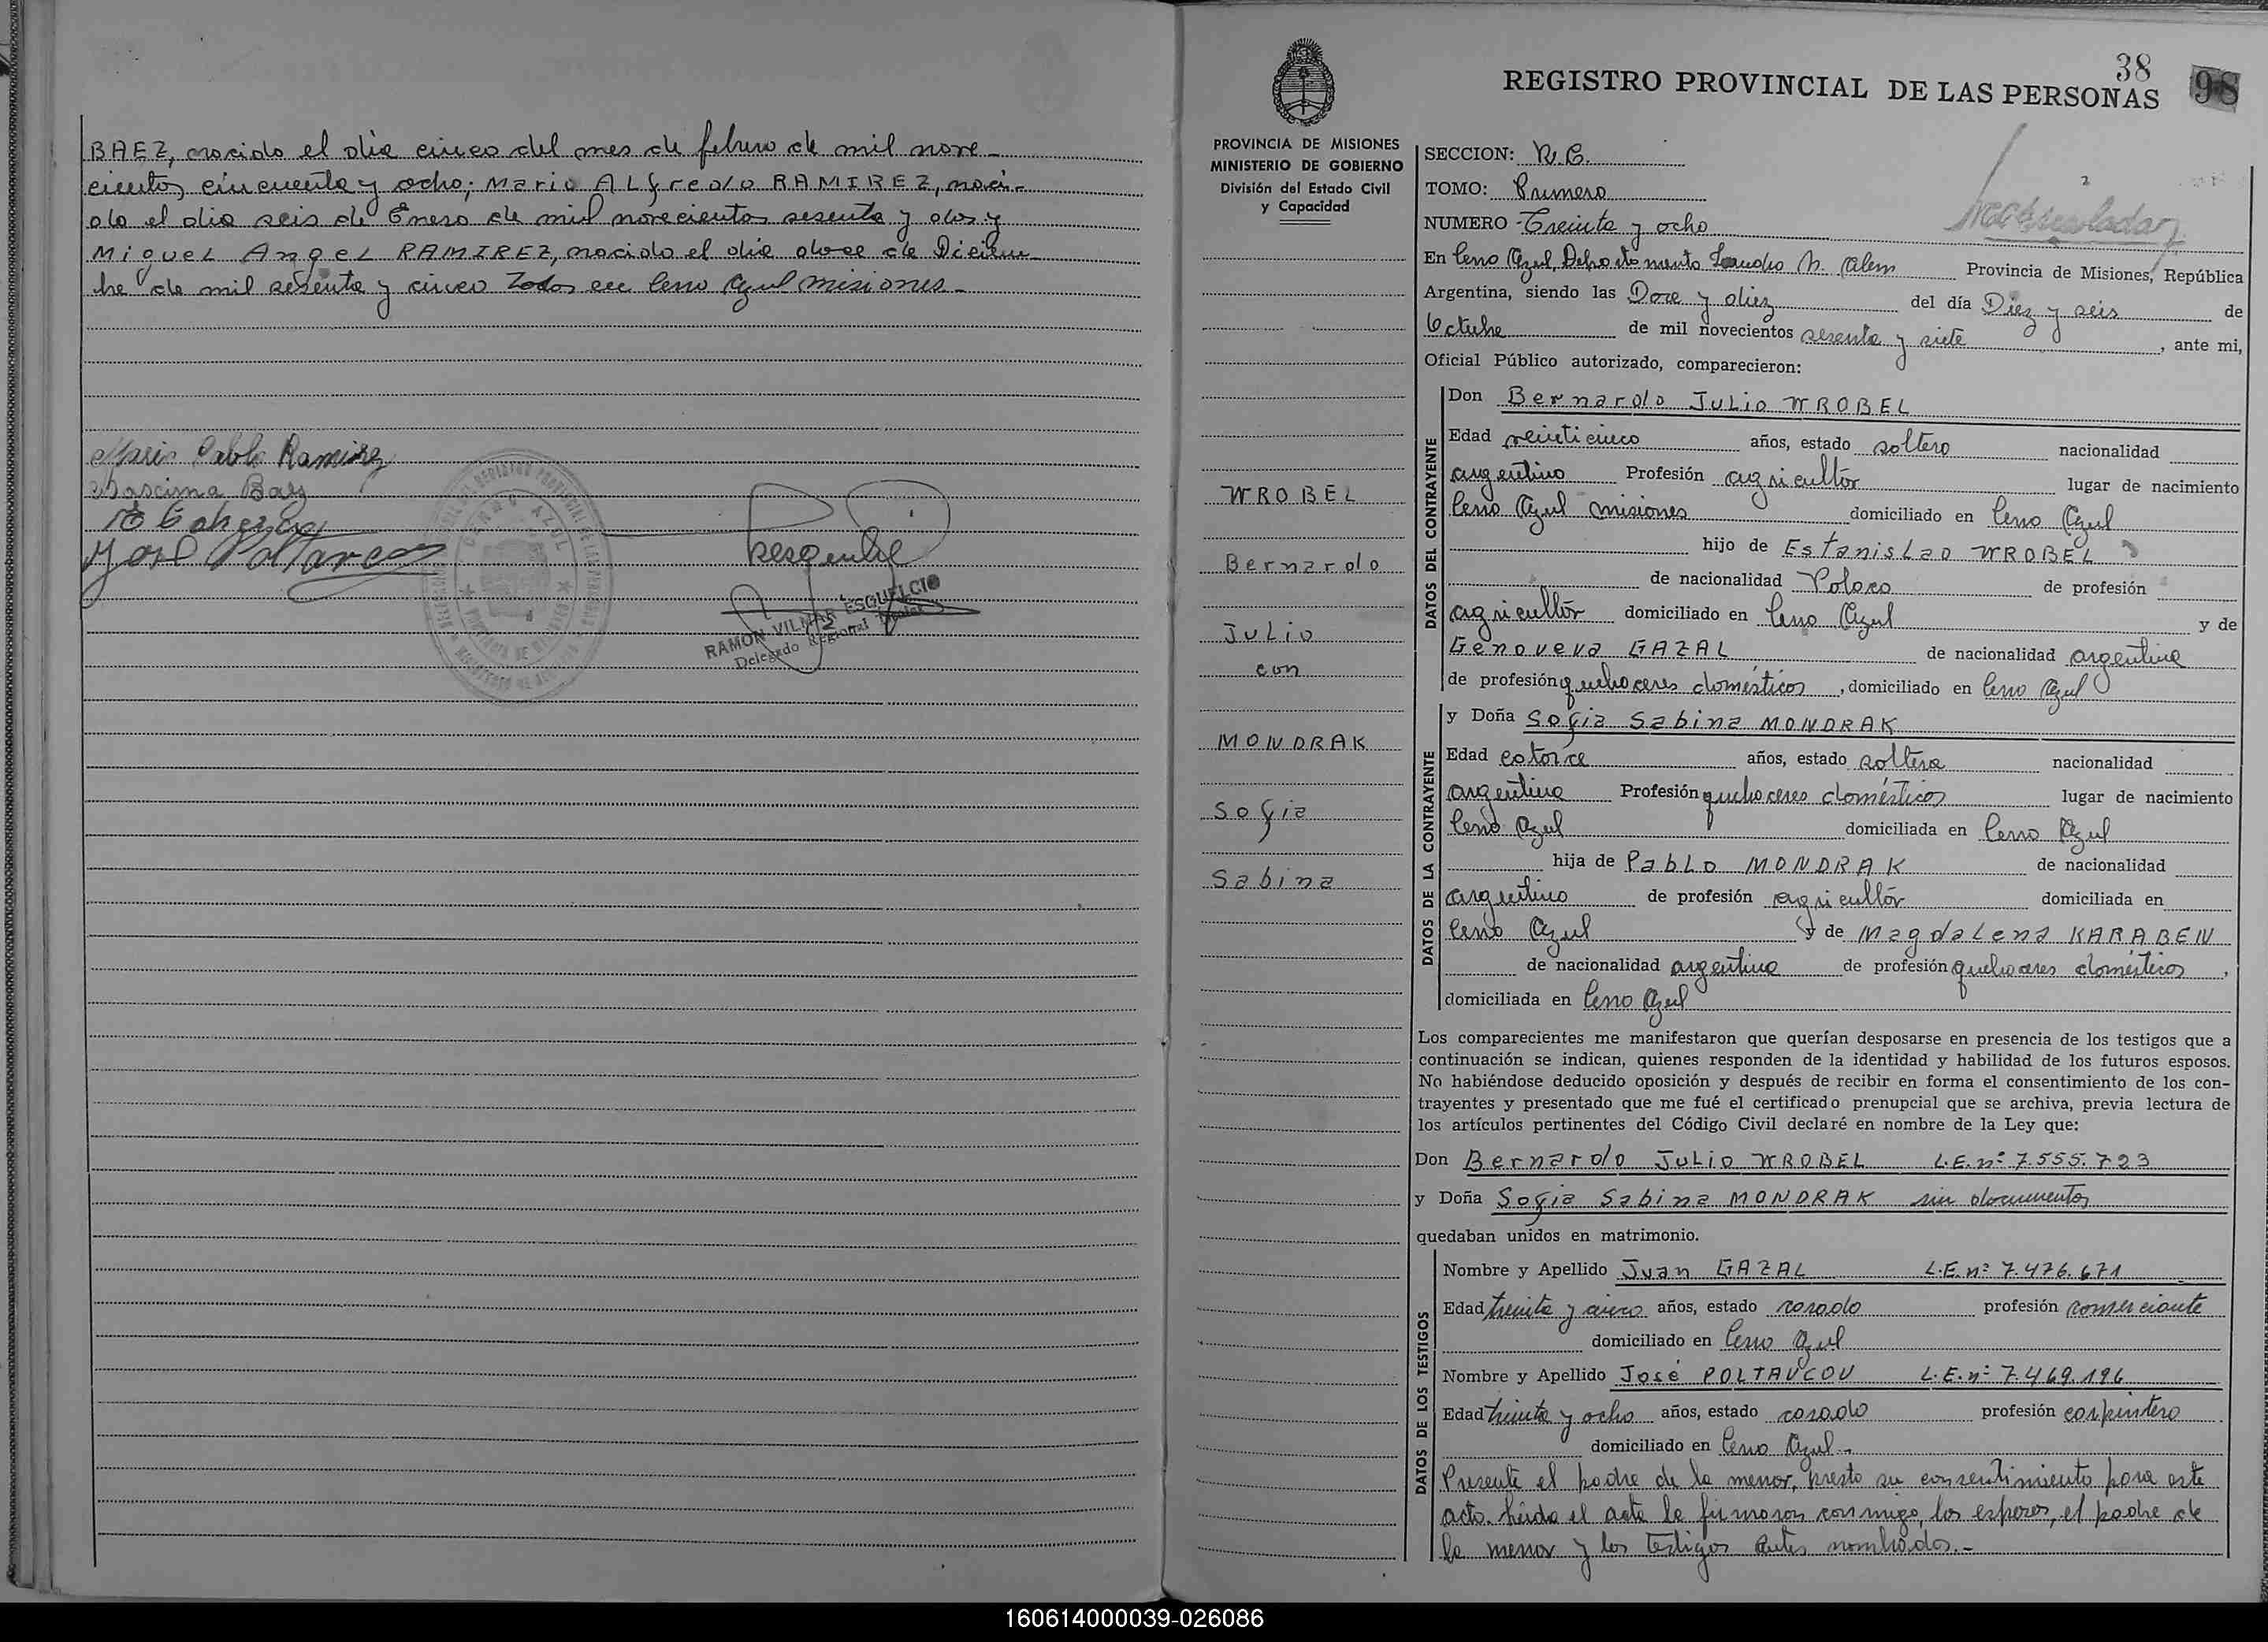 BAEZ, nacido el día cinco del mes de febrero de mil nove-
cientos cincuenta y ocho; Mario ALfredo RAMIREZ, naci-
do el día seis de Enero de mil novecientos sesenta y dos y
MigueL AngeL RAMIREZ, nacido el día doce de Diciem-
bre de mil sesenta y cinco Todos en Cerro Azul Misiones.-
Mario Pablo Ramirez
José Poltavcou
CERRO AZUL
RAMON VILMAR ESQUELCIO
Delegado Regional Titular
38
REGISTRO PROVINCIAL DE LAS PERSONAS
98
PROVINCIA DE MISIONES
MINISTERIO DE GOBIERNO
División del Estado Civil
y Capacidad
WROBEL
Bernardo
JuLio
con
MONDRAK
Sofia
Sabina
SECCION: R.C.
TOMO: Primero
NUMERO - Treinta y ocho
En Cerro Azul, Departamento Leandro N. Alem Provincia de Misiones, República
Argentina, siendo las Doce y diez del día Diez y seis de
Octubre de mil novecientos sesenta y siete, ante mi,
Oficial Público autorizado, comparecieron:
DATOS DEL CONTRAYENTE
Don Bernardo JuLio WROBEL
Edad veinticinco años, estado soltero nacionalidad
argentino Profesión agricultor lugar de nacimiento
Cerro Azul Misiones domiciliado en Cerro Azul
hijo de EstanisLao WROBEL
de nacionalidad Polaco de profesión
agricultor domiciliado en Cerro Azul y de
Genoveva GAZAL de nacionalidad argentina
de profesión quehaceres domésticos, domiciliado en Cerro Azul
DATOS DE LA CONTRAYENTE
y Doña Sofia Sabina MONDRAK
Edad catorce años, estado soltera nacionalidad
argentina Profesión quehaceres domésticos lugar de nacimiento
Cerro Azul domiciliada en Cerro Azul
hija de PabLo MONDRAK de nacionalidad
argentino de profesión agricultor domiciliada en
Cerro Azul y de MagdaLena KARABEN
de nacionalidad argentina de profesión quehaceres domésticos,
domiciliada en Cerro Azul
Los comparecientes me manifestaron que querían desposarse en presencia de los testigos que a
continuación se indican, quienes responden de la identidad y habilidad de los futuros esposos.
No habiéndose deducido oposición y después de recibir en forma el consentimiento de los con-
trayentes y presentado que me fué el certificado prenupcial que se archiva, previa lectura de
los artículos pertinentes del Código Civil declaré en nombre de la Ley que:
Don Bernardo JuLio WROBEL L.E.nº 7.555.723
y Doña Sofia Sabina MONDRAK sin documentos
quedaban unidos en matrimonio.
DATOS DE LOS TESTIGOS
Nombre y Apellido Juan GAZAL L.E.nº 7.476.671
Edad treinta y cinco años, estado casado profesión comerciante
domiciliado en Cerro Azul
Nombre y Apellido José POLTAVCOU L.E.nº 7.469.196
Edad treinta y ocho años, estado casado profesión carpintero
domiciliado en Cerro Azul.-
Presente el padre de la menor, presta su consentimiento para este
acto. Leida el acta la firmaron conmigo, los esposos, el padre de
la menor y los testigos antes nombrados.-
160614000039-026086